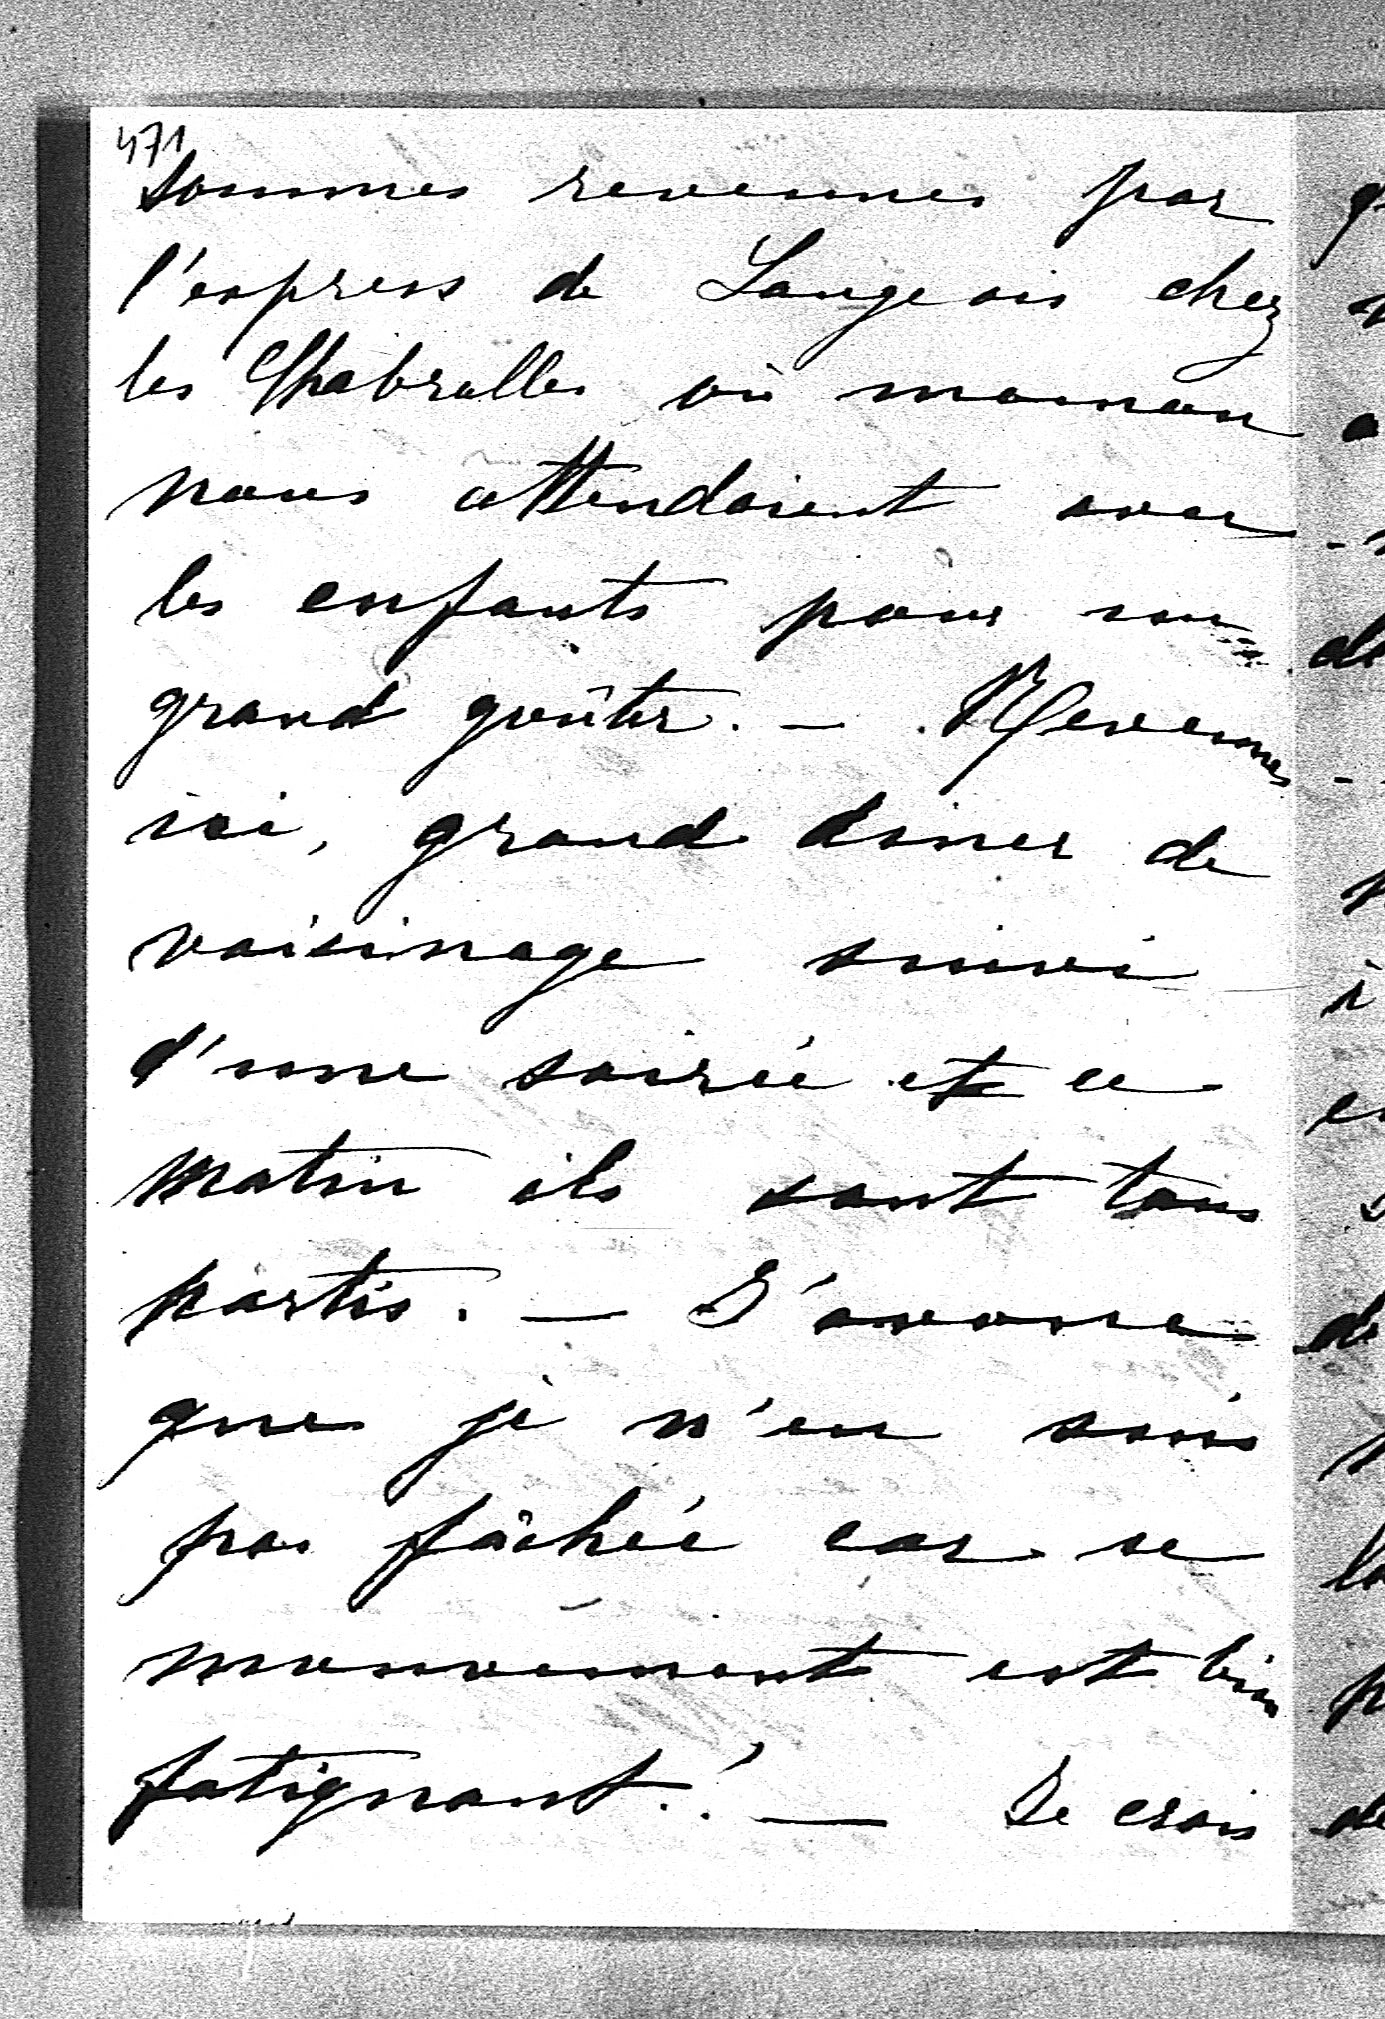 471
sommes revenues par
l'express de Langeais chez
les Chabrolles où maman
nous attendaient avec
les enfants pour un
grand goûter. — Revenues
ici, grand diner de
voisinage suivi
d'une soirée et ce
matin ils sont tous
partis. — J'avoue
que je n'en suis
pas fâchée car ce
mouvement est bien
fatigant! — Je crois